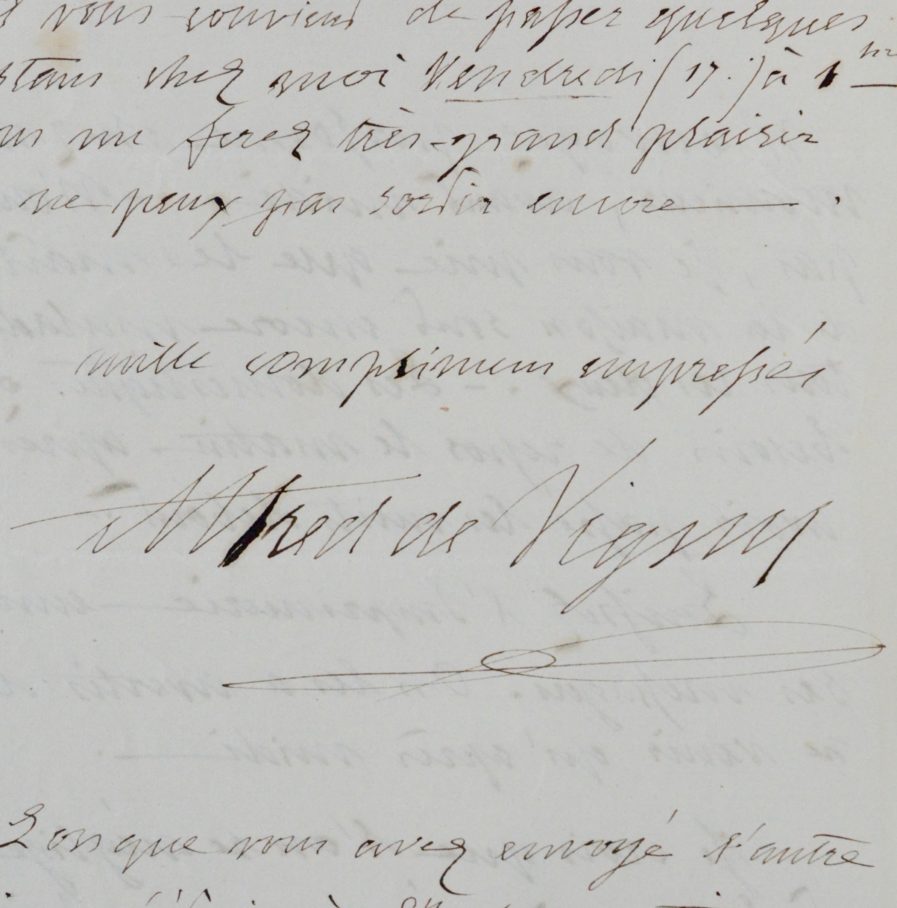 vous convient de passer quelques
stans chez moi Vendredi (17.) à 1 h
me ferez très-grand plaisir
ne peux pas sortir encore — .
mille complimens empressés
Alfred de Vigny
Lorsque vous avez envoyé l'autre